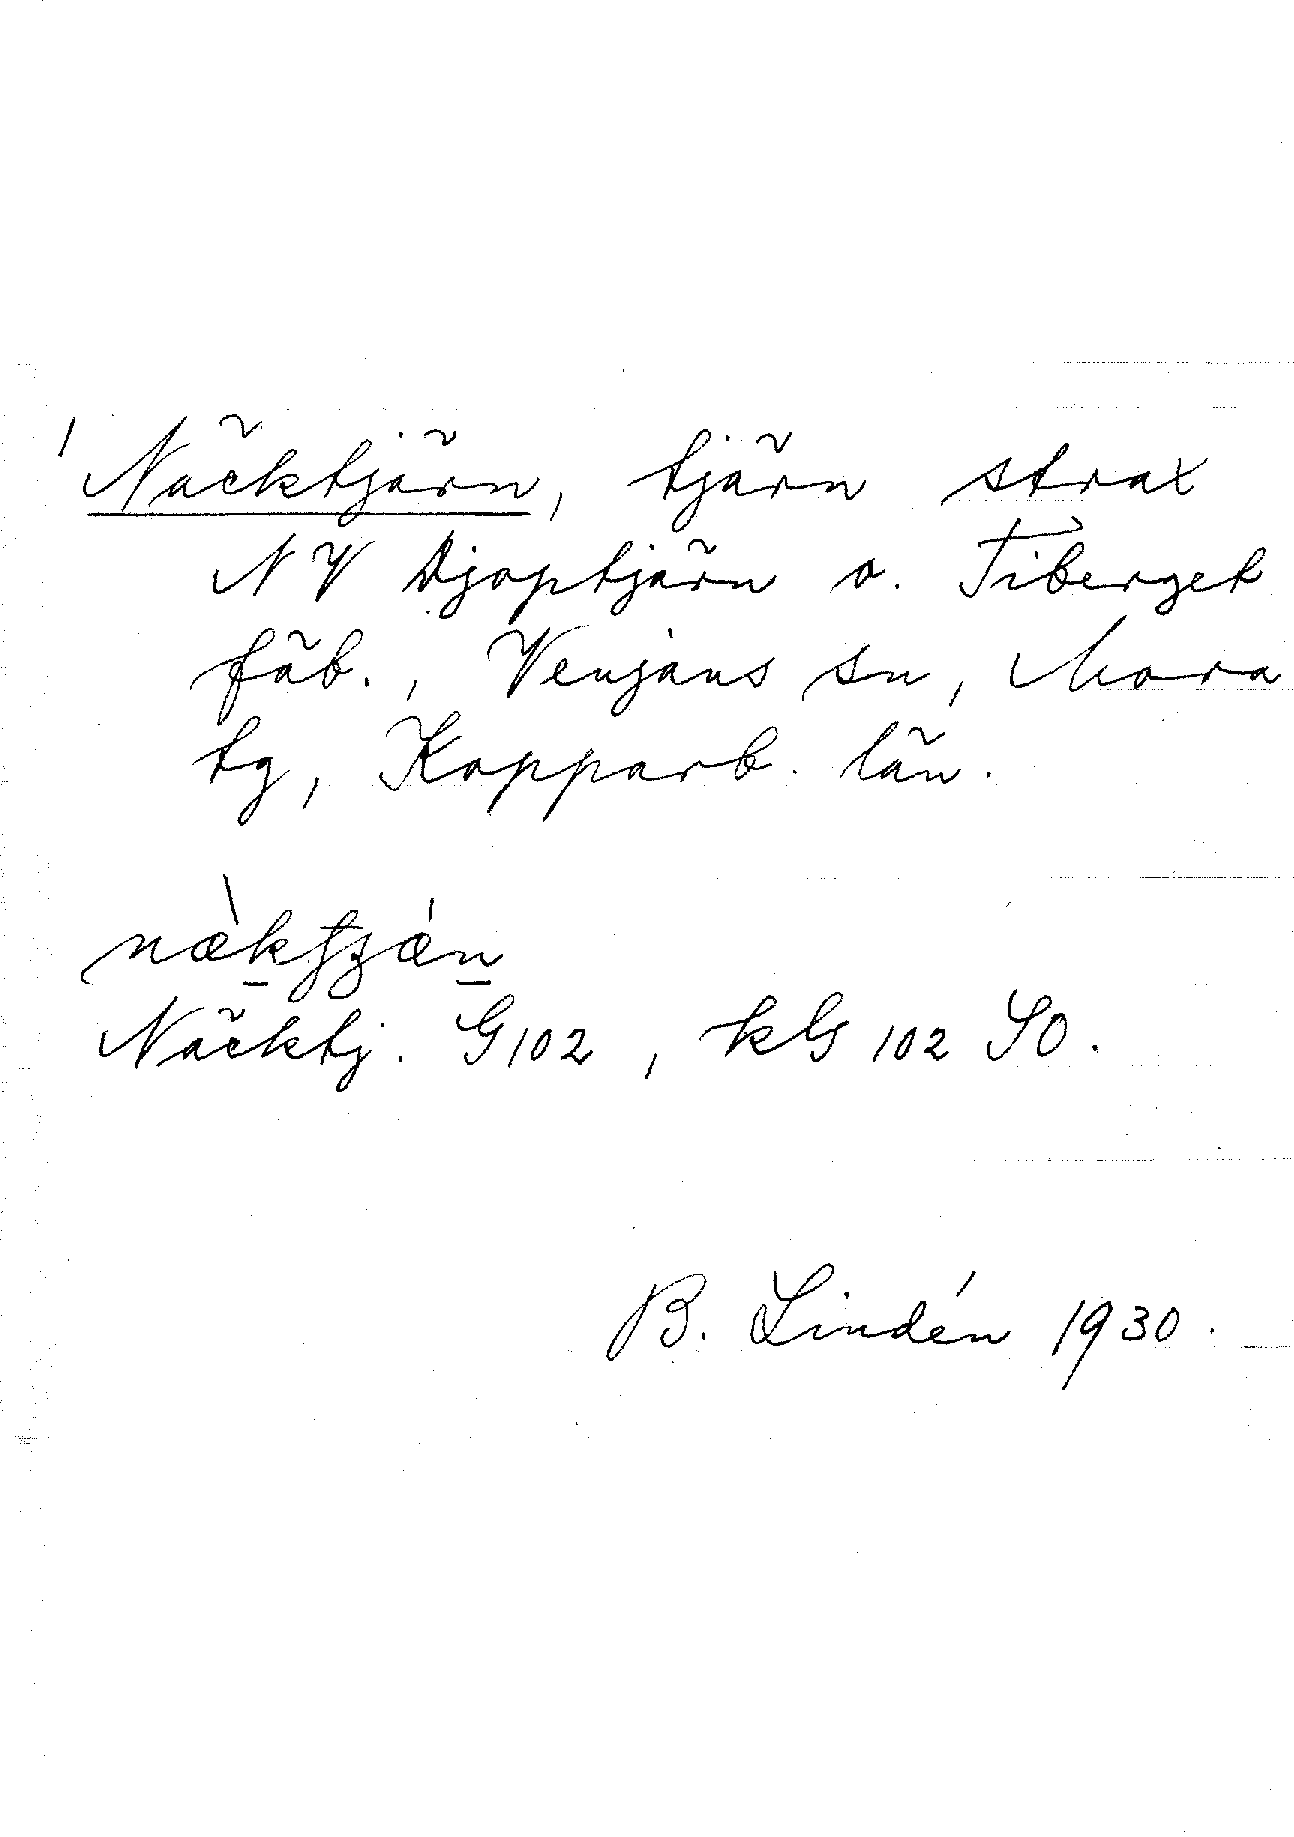 Näcktjärn, tjärn strax
NV Djoptjärn o. Tiberget
fäb., Venjans sn, Mora
tg, Kopparb. län.
Näcktj. G102, kG 102 SO.
B. Lindén 1930.